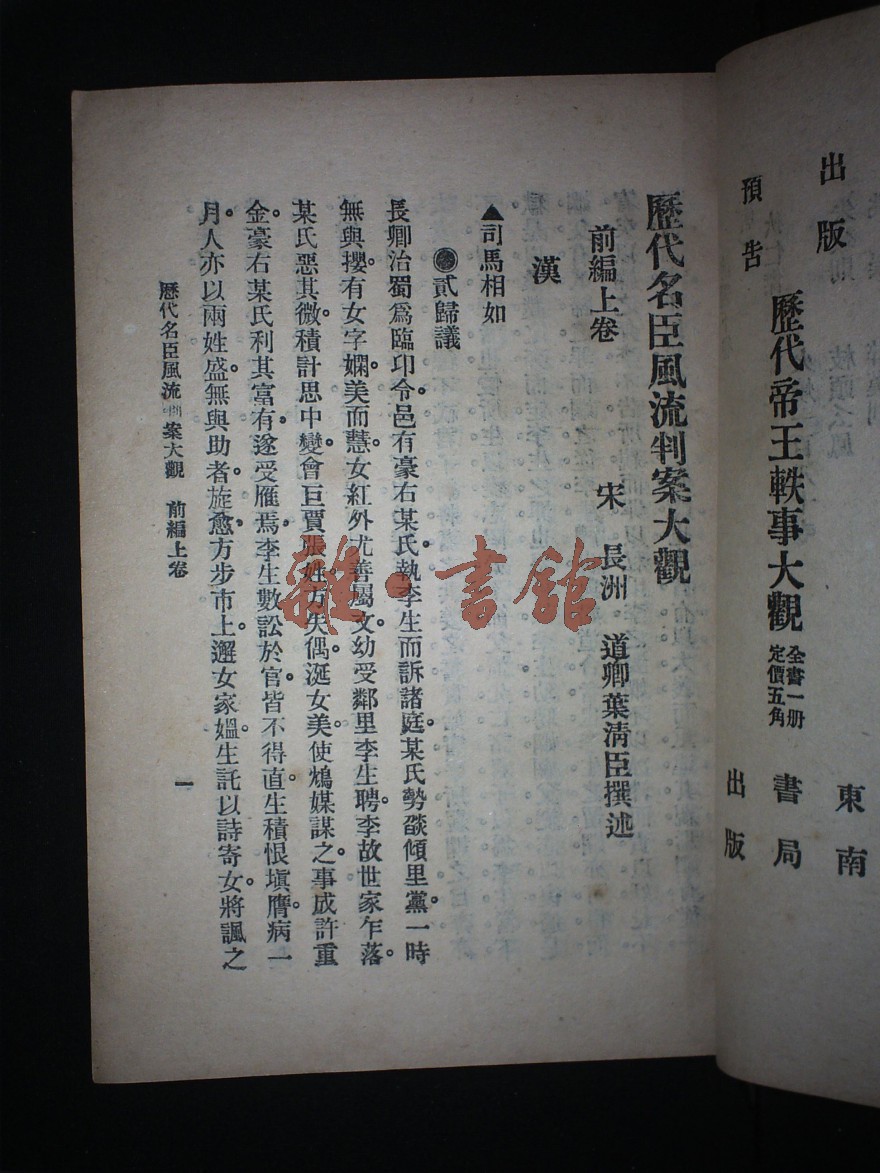 出版
預告
歷代帝王軼事大觀
全書一册
定價五角
東南
書局
出版
歷代名臣風流判案大觀
前編上卷
宋 長洲 道卿葉清臣撰述
漢
▲司馬相如
貳歸議
長卿治蜀爲臨印令邑有豪右某氏執李生而訴諸庭某氏勢燄傾里黨。一時
無與攖。有女字嫻。美而慧。女紅外尤善屬文。幼受鄰里李生聘。李故世家。乍落。
某氏惡其微。積計思中變。會巨賈張姓方失偶。涎女美。使鴆媒謀之。事成許重
金。豪右某氏利其富有。遂受雁焉。李生數訟於官。皆不得直。生積恨塡膺。病一
月。人亦以兩姓盛。無與助者。旋愈。方步市上。邂女家媼。生託以詩寄女。將諷之
歷代名臣風流案大觀 前編上卷
一
雜·書館